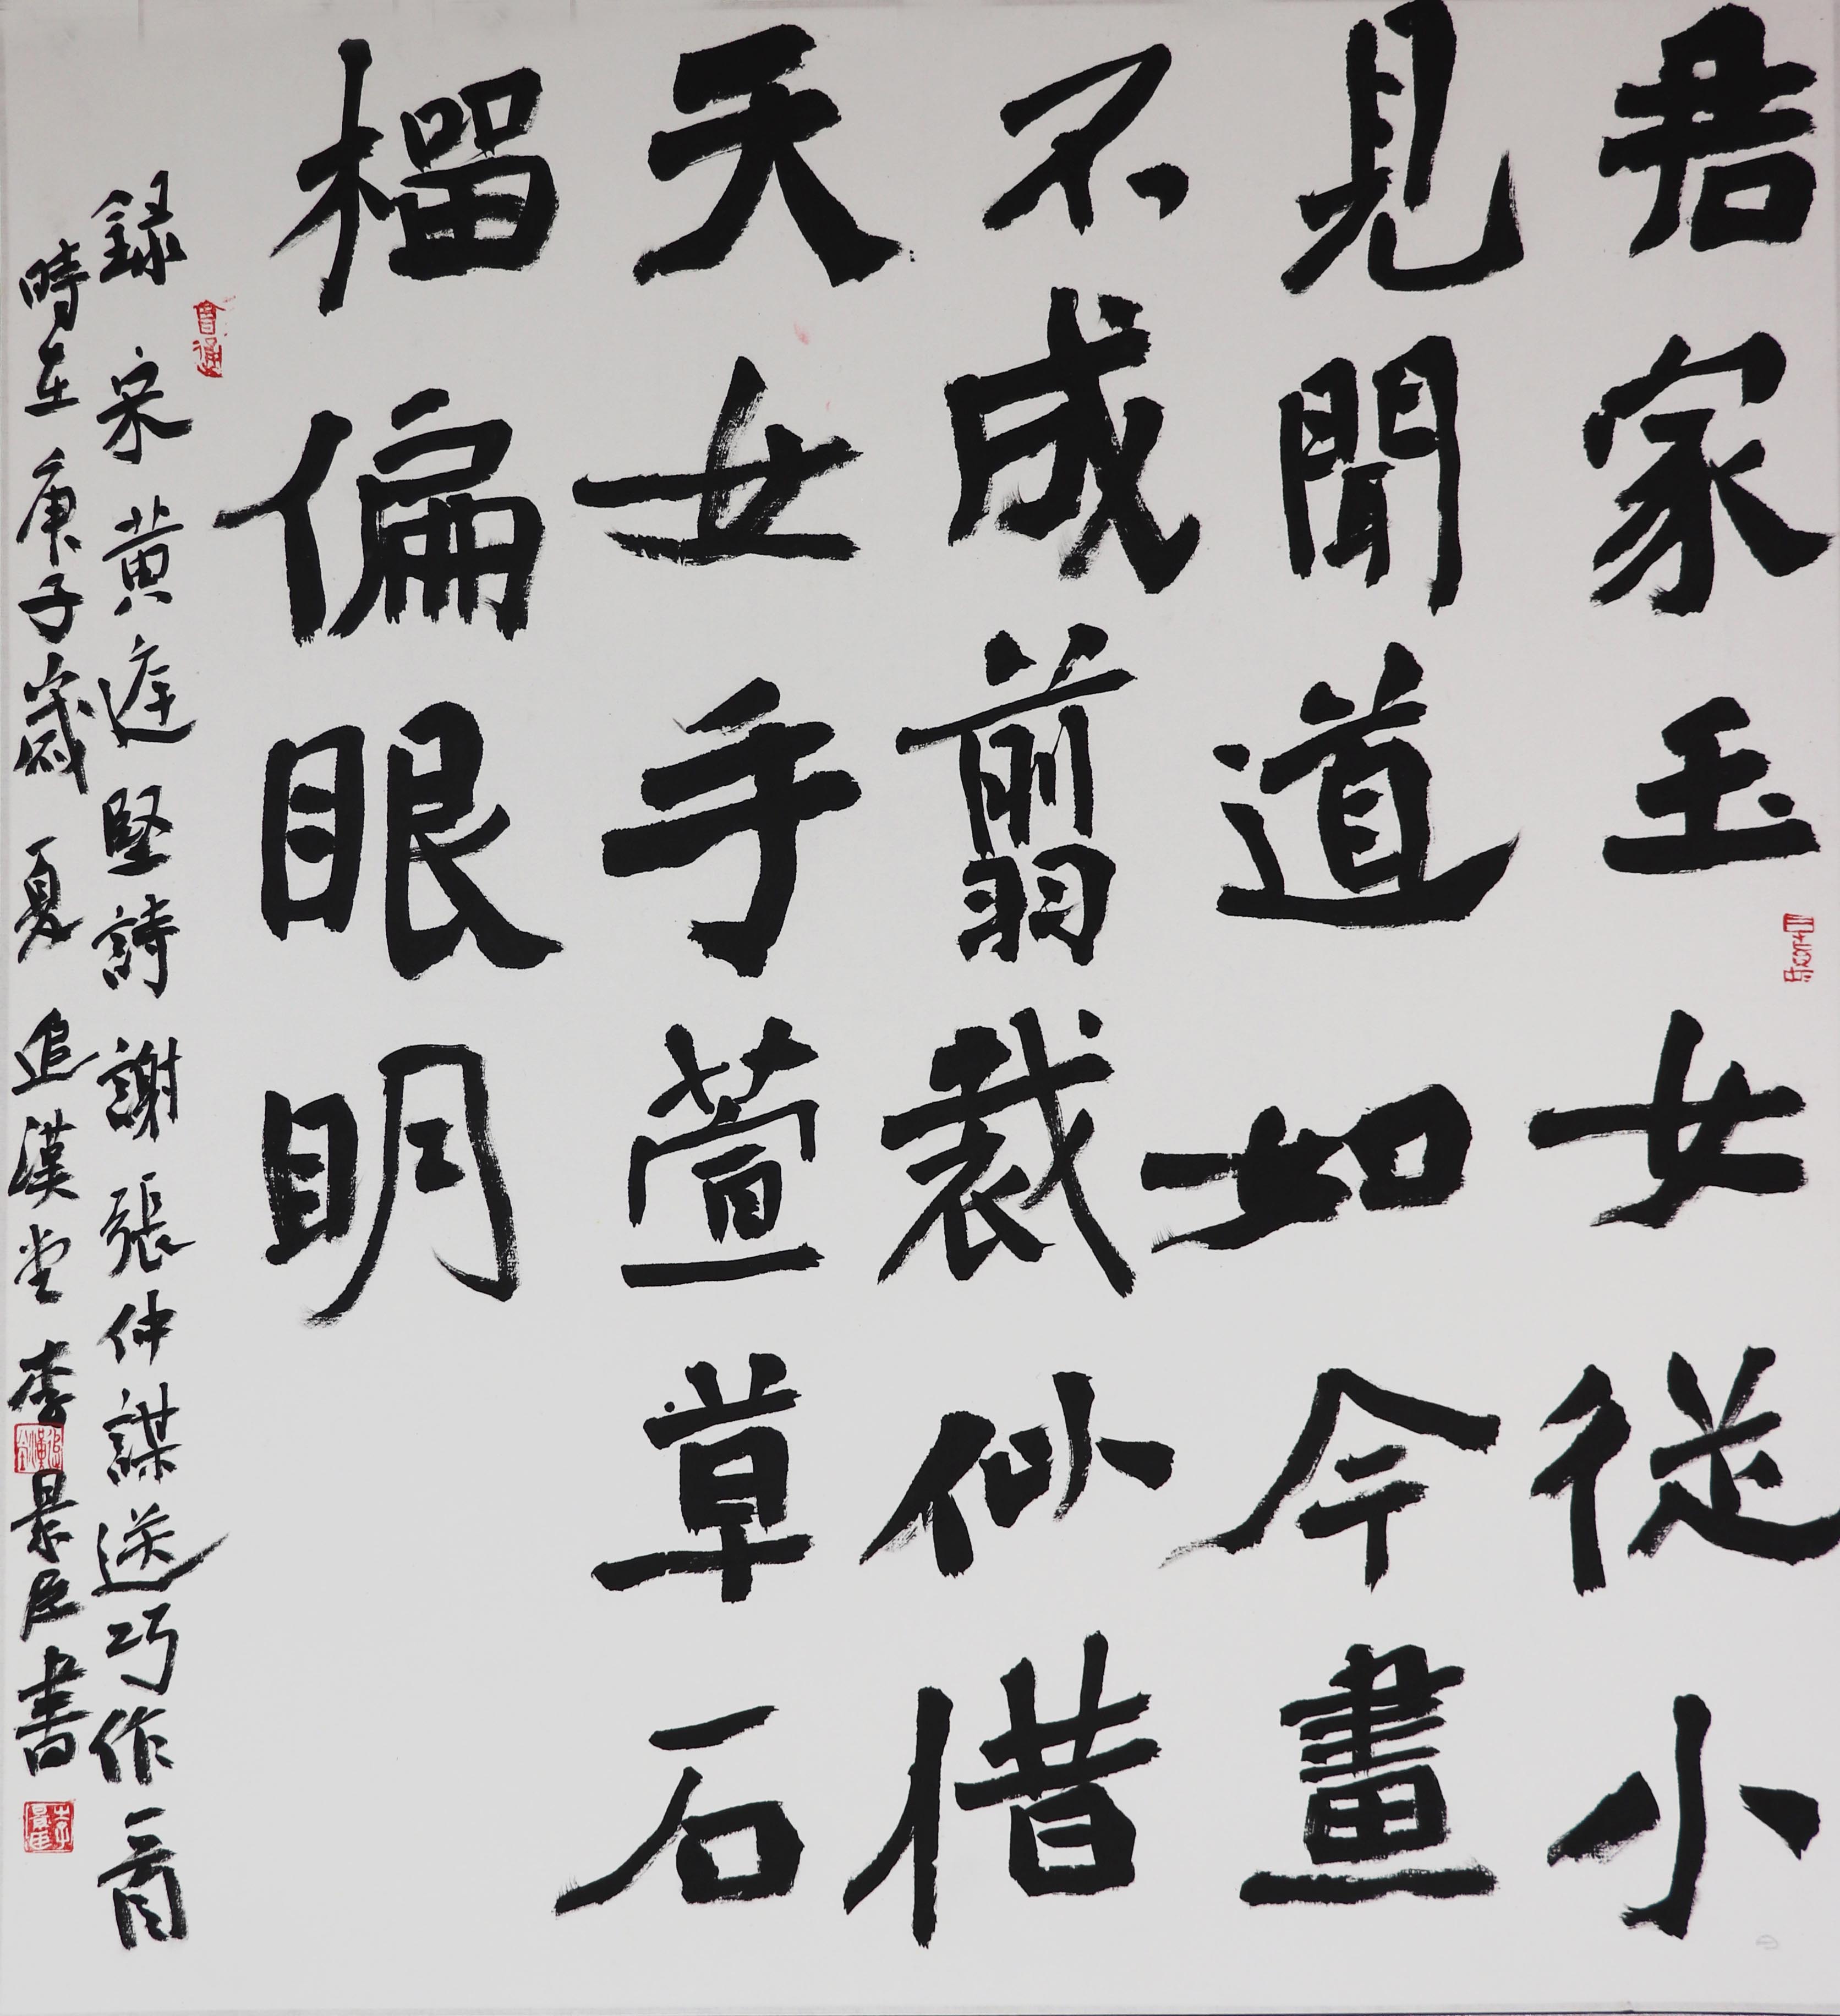 君家玉女從小
見聞道如今畫
不成翦裁似借
天女手萱草石
榴偏眼明
録宋黄庭堅詩謝張仲謀送巧作一首
時在庚子歲夏追漢堂李景臣書